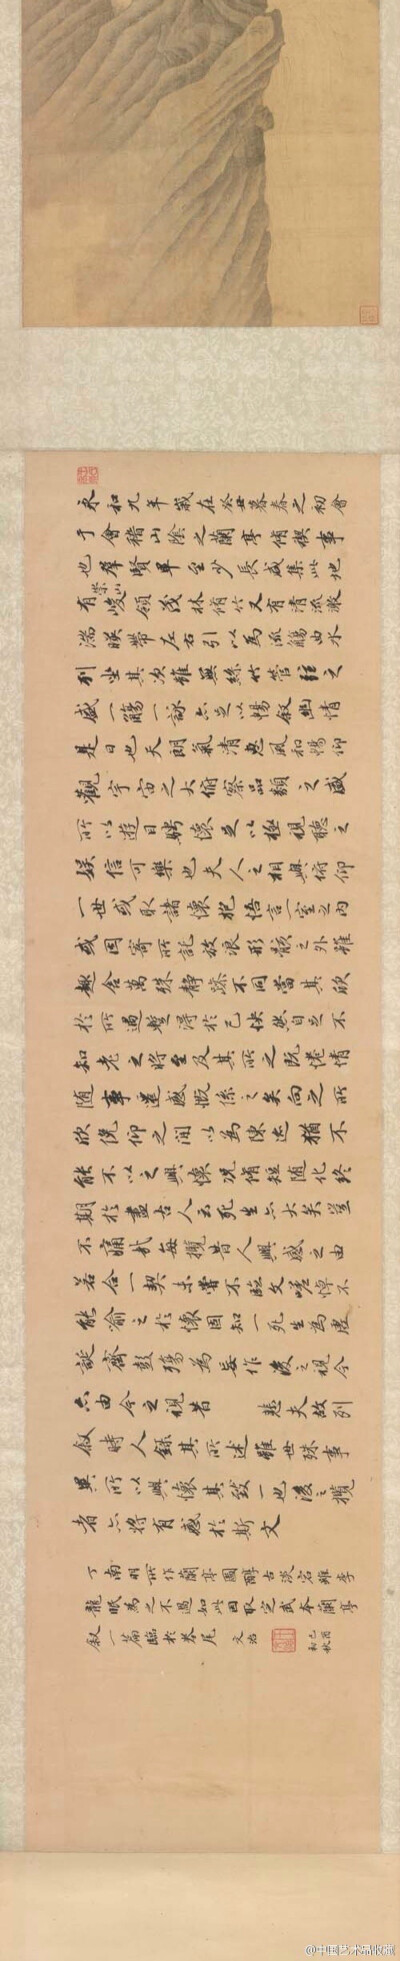 永和九年歲在癸丑暮春之初會
于會稽山陰之蘭亭脩禊事
也羣賢畢至少長咸集此地
有崇山峻領茂林脩竹又有清流激
湍暎帶左右引以為流觴曲水
列坐其次雖無絲竹管弦之
盛一觴一詠亦足以暢叙幽情
是日也天朗氣清惠風和暢仰
觀宇宙之大俯察品類之盛
所以遊目騁懷足以極視聽之
娛信可樂也夫人之相與俯仰
一世或取諸懷抱悟言一室之內
或因寄所託放浪形骸之外雖
趣舍萬殊靜躁不同當其欣
於所遇暫得於己怏然自足不
知老之將至及其所之既惓情
隨事遷感慨係之矣向之所
欣俛仰之間以為陳迹猶不
能不以之興懷況脩短隨化終
期於盡古人云死生亦大矣豈
不痛哉每攬昔人興感之由
若合一契未嘗不臨文嗟悼不
能喻之於懷固知一死生為虛
誕齊彭殤為妄作後之視今
亦由今之視昔 悲夫故列
叙時人錄其所述雖世殊事
異所以興懷其致一也後之攬
者亦將有感於斯文
丁南羽所作蘭亭圖醇古淡宕雖李
龍眠為之不過如此因取定武本蘭亭
叙一篇臨於卷尾 文治
己酉
初秋
@中国艺术品收藏